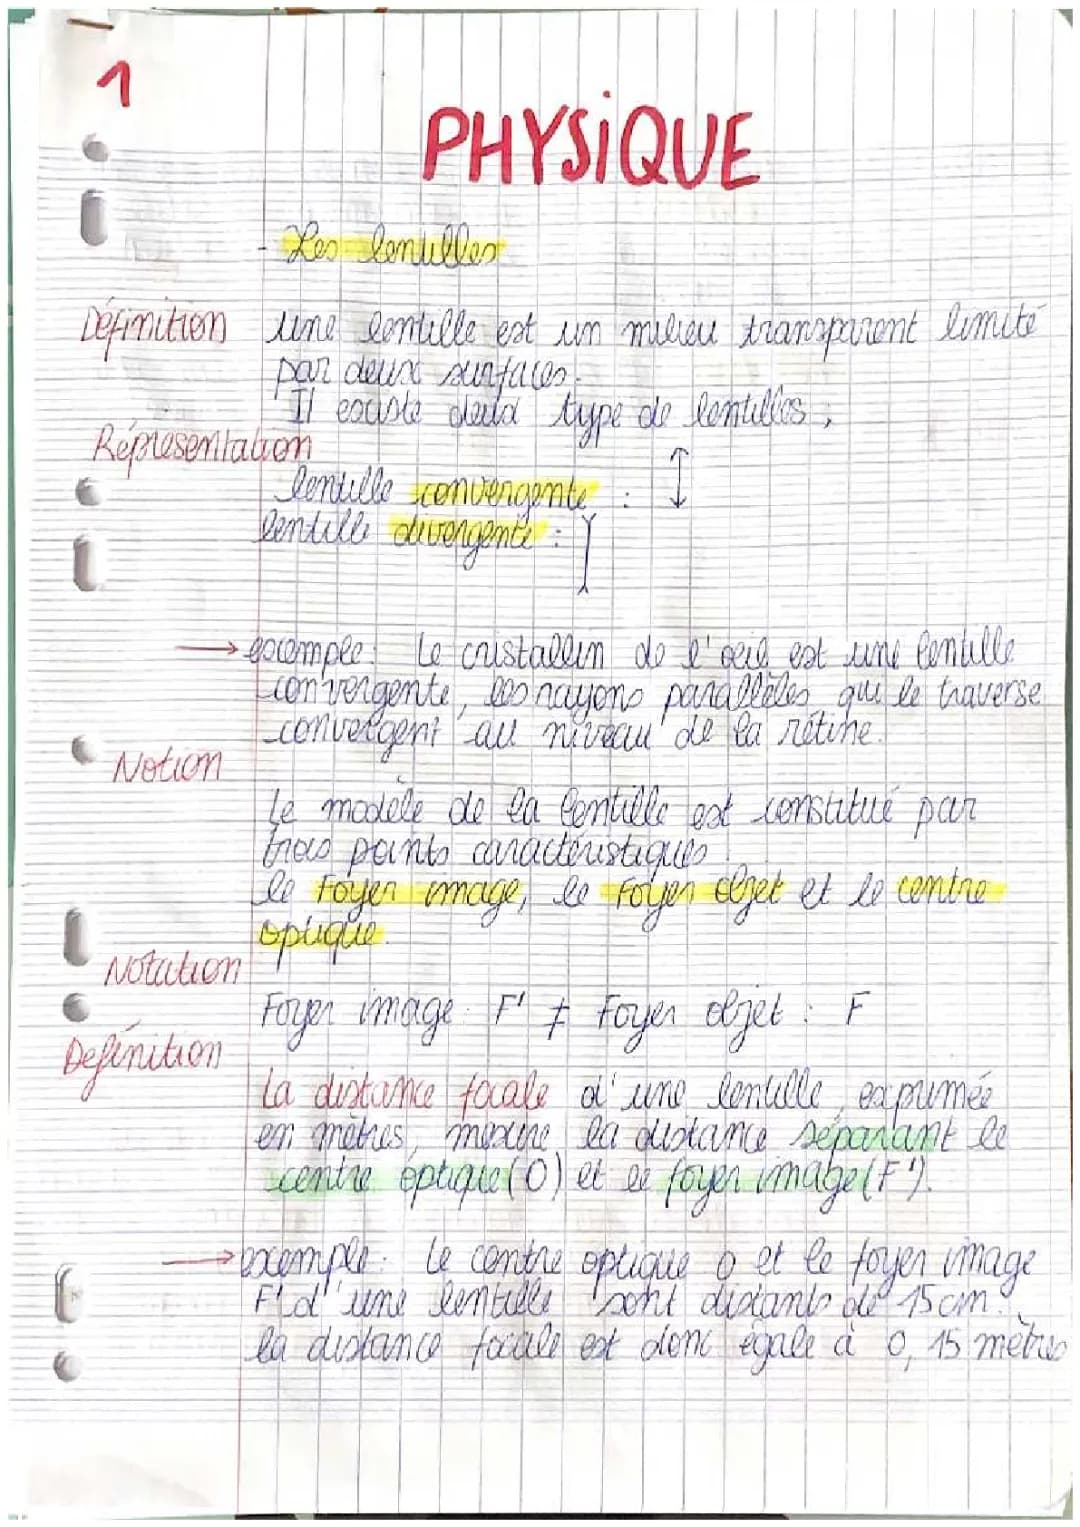 1
PHYSiQUE
- Les lentilles
Définition Une lentille est un milieu transparent limité
par deux surfaces.
Il existe deux type de lentilles ;
Réprésentation
lentille convergente :
lentille divergente :
→ exemple : Le cristallin de l'oeil est une lentille
convergente, les rayons parallèles qui le traverse
convergent au niveau de la rétine.
Notion
Le modèle de la lentille est constitué par
trois points caractéristiques
le Foyer image, le Foyer objet et le centre
optique.
Notation
Foyer image : F' ≠ Foyer objet : F
Définition
La distance focale d'une lentille, exprimée
en mètres, mesure la distance séparant le
centre optique (O) et le foyer image (F').
→ exemple : Le centre optique O et le foyer image
F' d'une lentille sont distants de 15 cm.
la distance focale est donc égale à 0,15 mètres